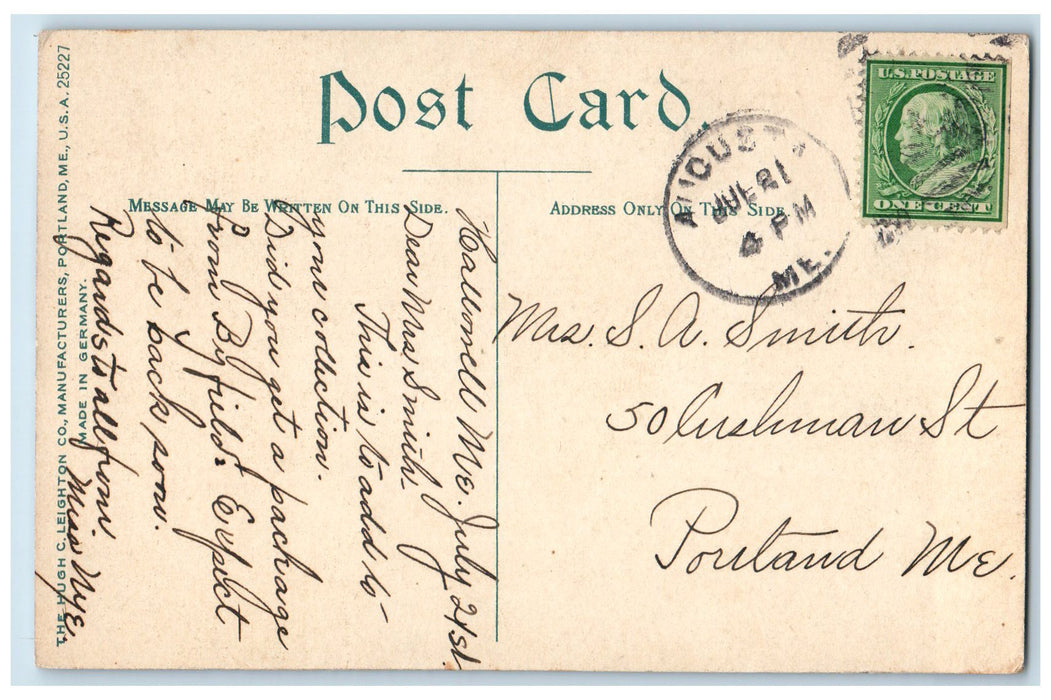 Post Card.
MESSAGE MAY BE WRITTEN ON THIS SIDE.
ADDRESS ONLY ON THIS SIDE
THE HUGH C. LEIGHTON CO., MANUFACTURERS, PORTLAND, ME., U.S.A. 25227
MADE IN GERMANY.
U.S. POSTAGE
ONE CENT
AUGUSTA
JUL 21
4 PM
ME.
Hallowell Me. July 21st
Dear Mrs Smith-
This is to add to
your collection.
Did you get a package
from Byfield? Expect
to be back soon.
Regards to all from
Miss Nye
Mrs. S. A. Smith.
50 Cushman St
Portland Me.